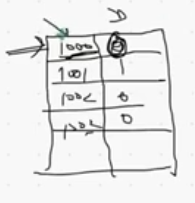 D
1000 0
1001 1
1002 0
1002 0